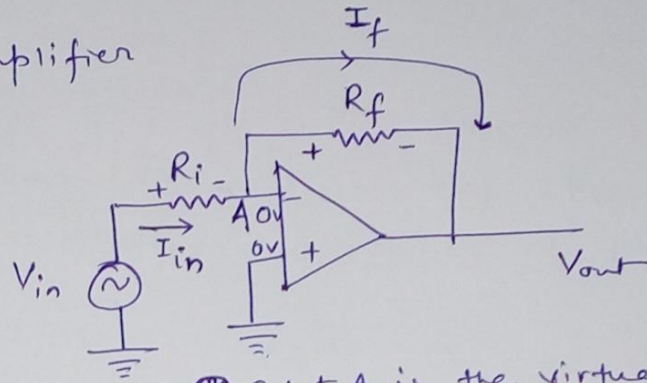 plifier
I_f
R_f
+ -
+ R_i -
A 0v -
I_in
0v +
V_in
V_out
A is the virtua